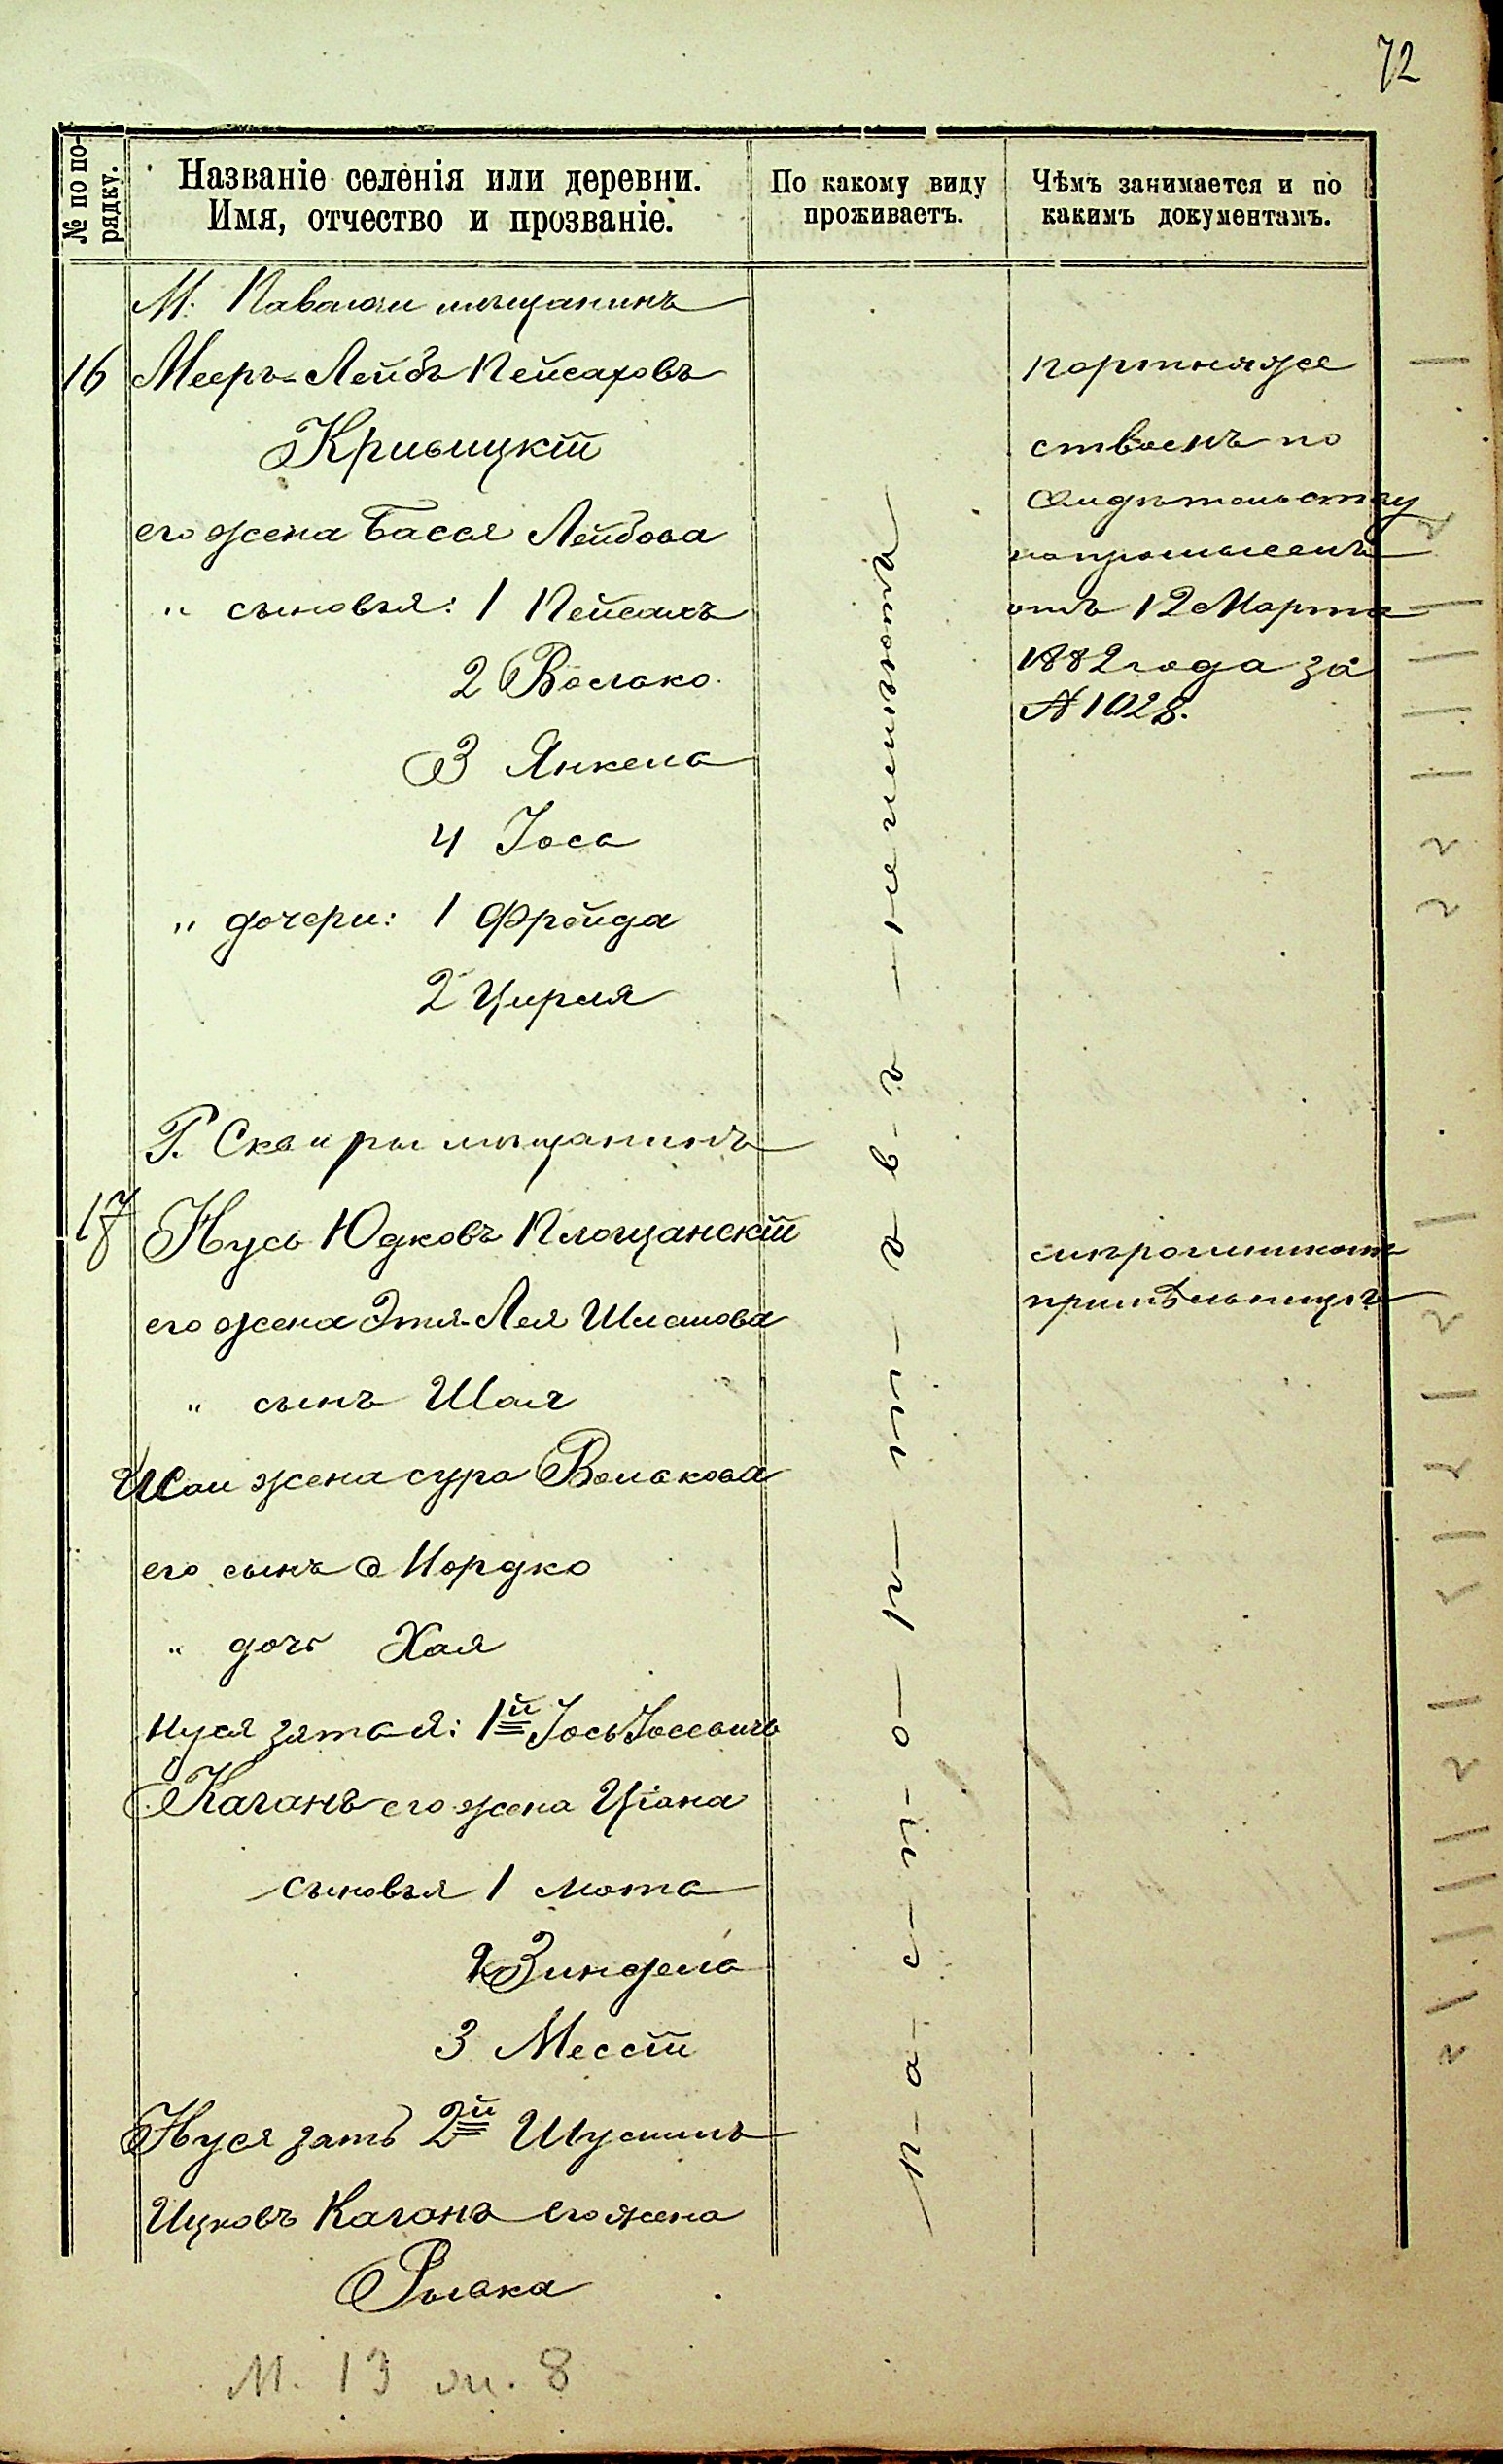 72
№ по по-
рядку.
Названіе селенія или деревни.
Имя, отчество и прозваніе.
По какому виду
проживаетъ.
Чѣмъ занимается и по
какимъ документамъ.
М. Паволочи мѣщанинъ
16 Мееръ-Лейбъ Пейсаховъ
Кривицкій
его жена Бася Лейбова
" сыновья: 1 Пейсахъ
2 Волько
3 Янкель
4 Іось
" дочери: 1 Фрейда
2 Цирля
портняже
ствомъ по
свидѣтельству
на промыселъ
отъ 12 Марта
1882 года за
№ 1028.
Г. Сквиры мѣщанинъ
17 Нусь Юдковъ Площанскій
его жена Этя-Лея Шлемова
" сынъ Шая
Шаи жена Сура Вольхова
его сынъ Мордко
" дочь Хая
Нуся зятья: 1й Іось Іосевичъ
Каганъ его жена Ціона
сыновья 1 Мота
2 Зинделъ
3 Мессій
Нуся зять 2й Шулимъ
Ицковъ Каганъ его жена
Рывка
мѣрошникомъ
при мельницѣ
п-а-с-п-о-р-т-о-в-ъ - не имѣютъ
М. 13 ж. 8